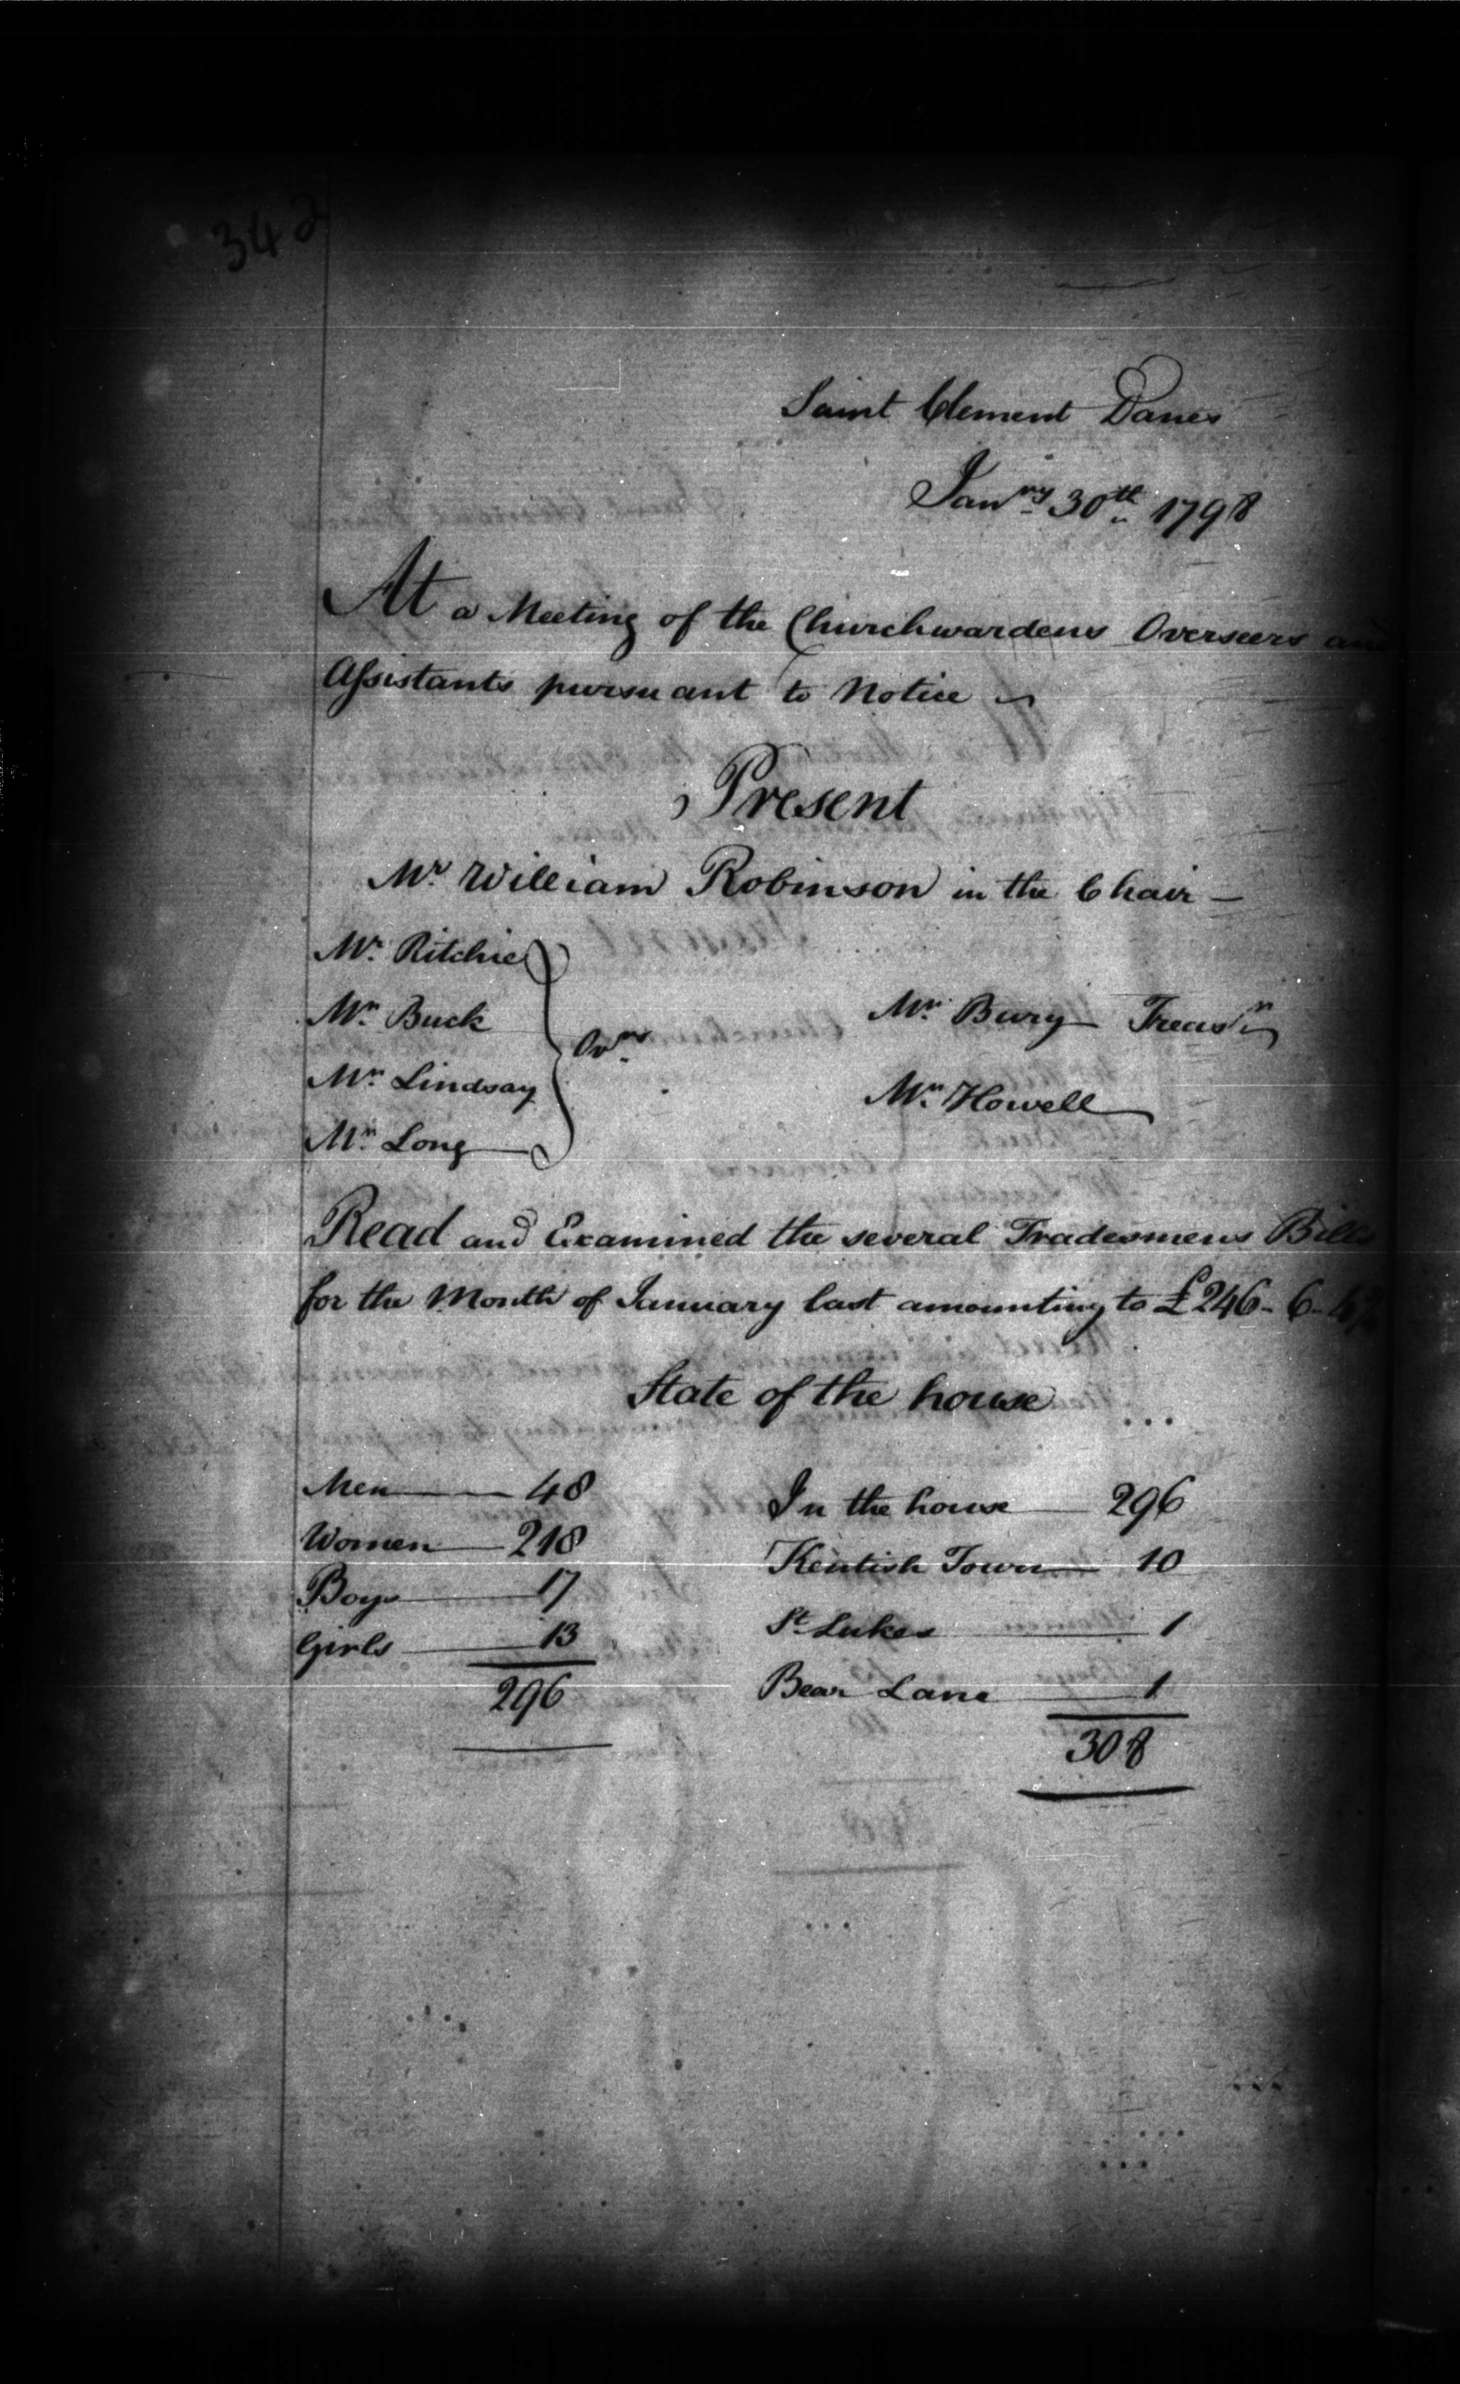 342
Saint Clement Danes
Janry 30th 1798
At a Meeting of the Churchwardens Overseers and
Assistants pursuant to Notice
Present
Mr William Robinson in the Chair
Mr. Ritchie
Mr. Buck
Mr. Lindsay
Mr. Long
Ovrs
Mr. Bury Treasr
Mr. Howell
Read and Examined the several Tradesmens Bills
for the Month of January last amounting to £246-6-
State of the house
Men 48
Women 218
Boys 17
Girls 13
296
In the house 296
Kentish Town 10
St Lukes 1
Bear Lane 1
308